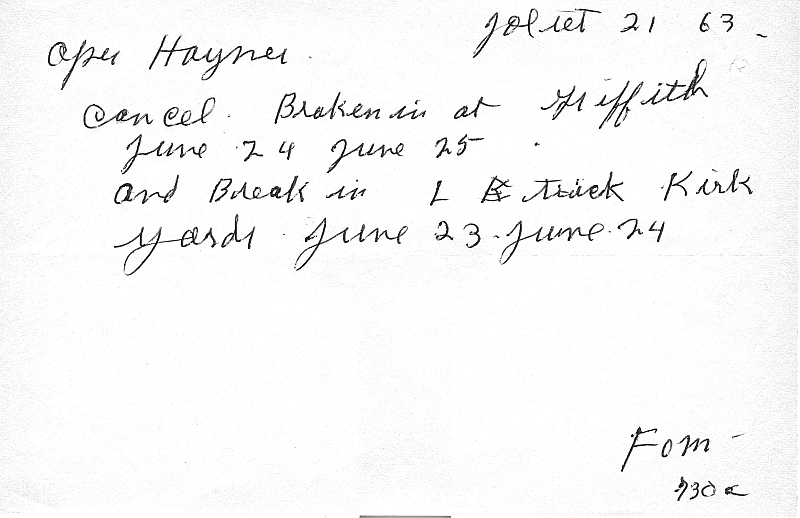 Joliet 21 63
Oper Hayner.
Cancel. Broken in at Griffith
June 24 June 25
and Break in L E track Kirk
yards June 23 - June 24
Fom -
730a